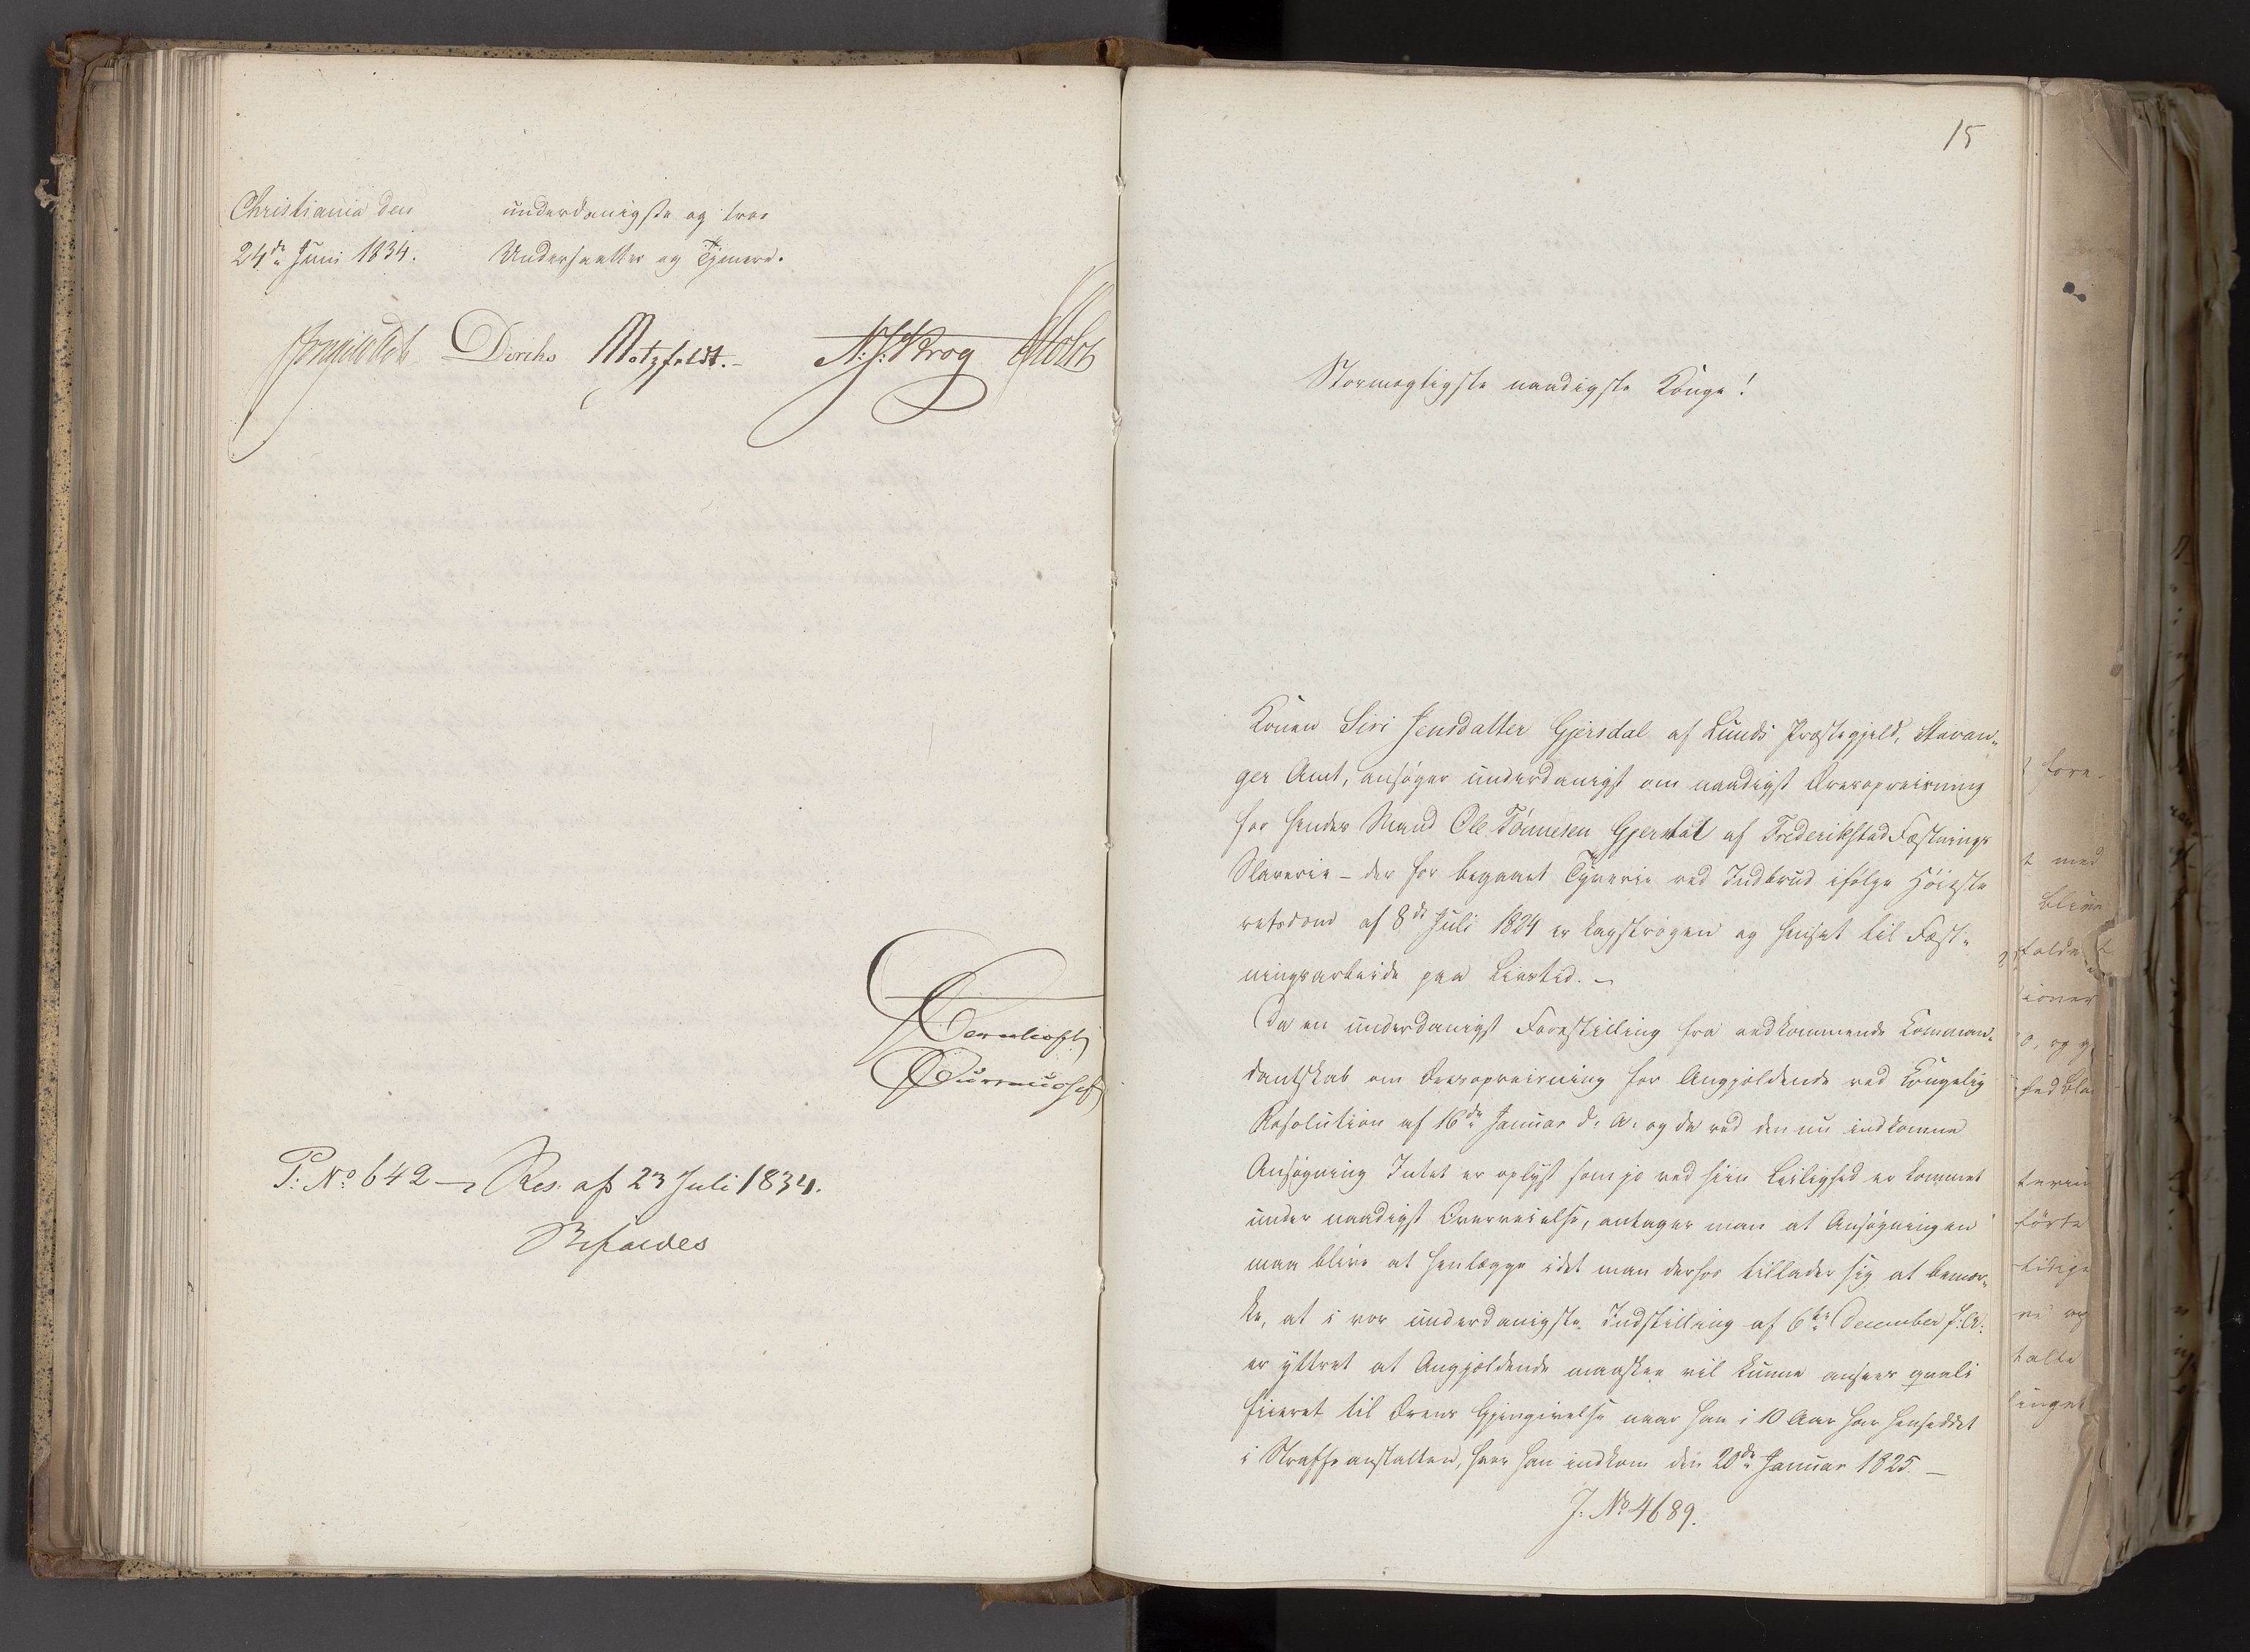 Christiania den
24de Juni 1834.
underdanigste og troe
Undersaatter og Tjenere.
Diriks Motzfeldt.- N: J: Krog Holst
P: No 642 - Res. af 23 Juli 1834.
Bifaldes
15
Stormægtigste naadigste Konge!
Konen Siri Jensdatter Gjersdal af Lunds Præstegjeld, Stavan„
ger Amt, ansøger underdanigst om naadigst Æresopreisning
for hendes Mand Ole Tønnesen Gjersdal af Frederikstad Fæstnings
Slaverie - der for begaaet Tyverie ved Indbrud ifølge Høieste
retsdom af 8de Juli 1824 er kagstrøgen og hensat til Fæst„
ningsarbeide paa Livstid. -
Da en underdanigst Forestilling fra vedkommende Comman„
dantskab om Æresopreisning for Angjældende ved Kongelig
Resolution af 16de Januar d. A. og da ved den nu indkomne
Ansøgning Intet er oplyst som jo ved hiin Leilighed er kommet
under naadigst Overveielse, antager man at Ansøgningen
maa blive at henlægge idet man derhos tillader sig at bemær„
ke, at i vor underdanigste Indstilling af 6te December f: A:
er yttret at Angjældende maaskee vil kunne ansees quali
ficeret til Ærens Gjengivelse naar han i 10 Aar har henseddet
i Straffeanstalten, hvor han indkom den 20de Januar 1825. -
J: No 4689.